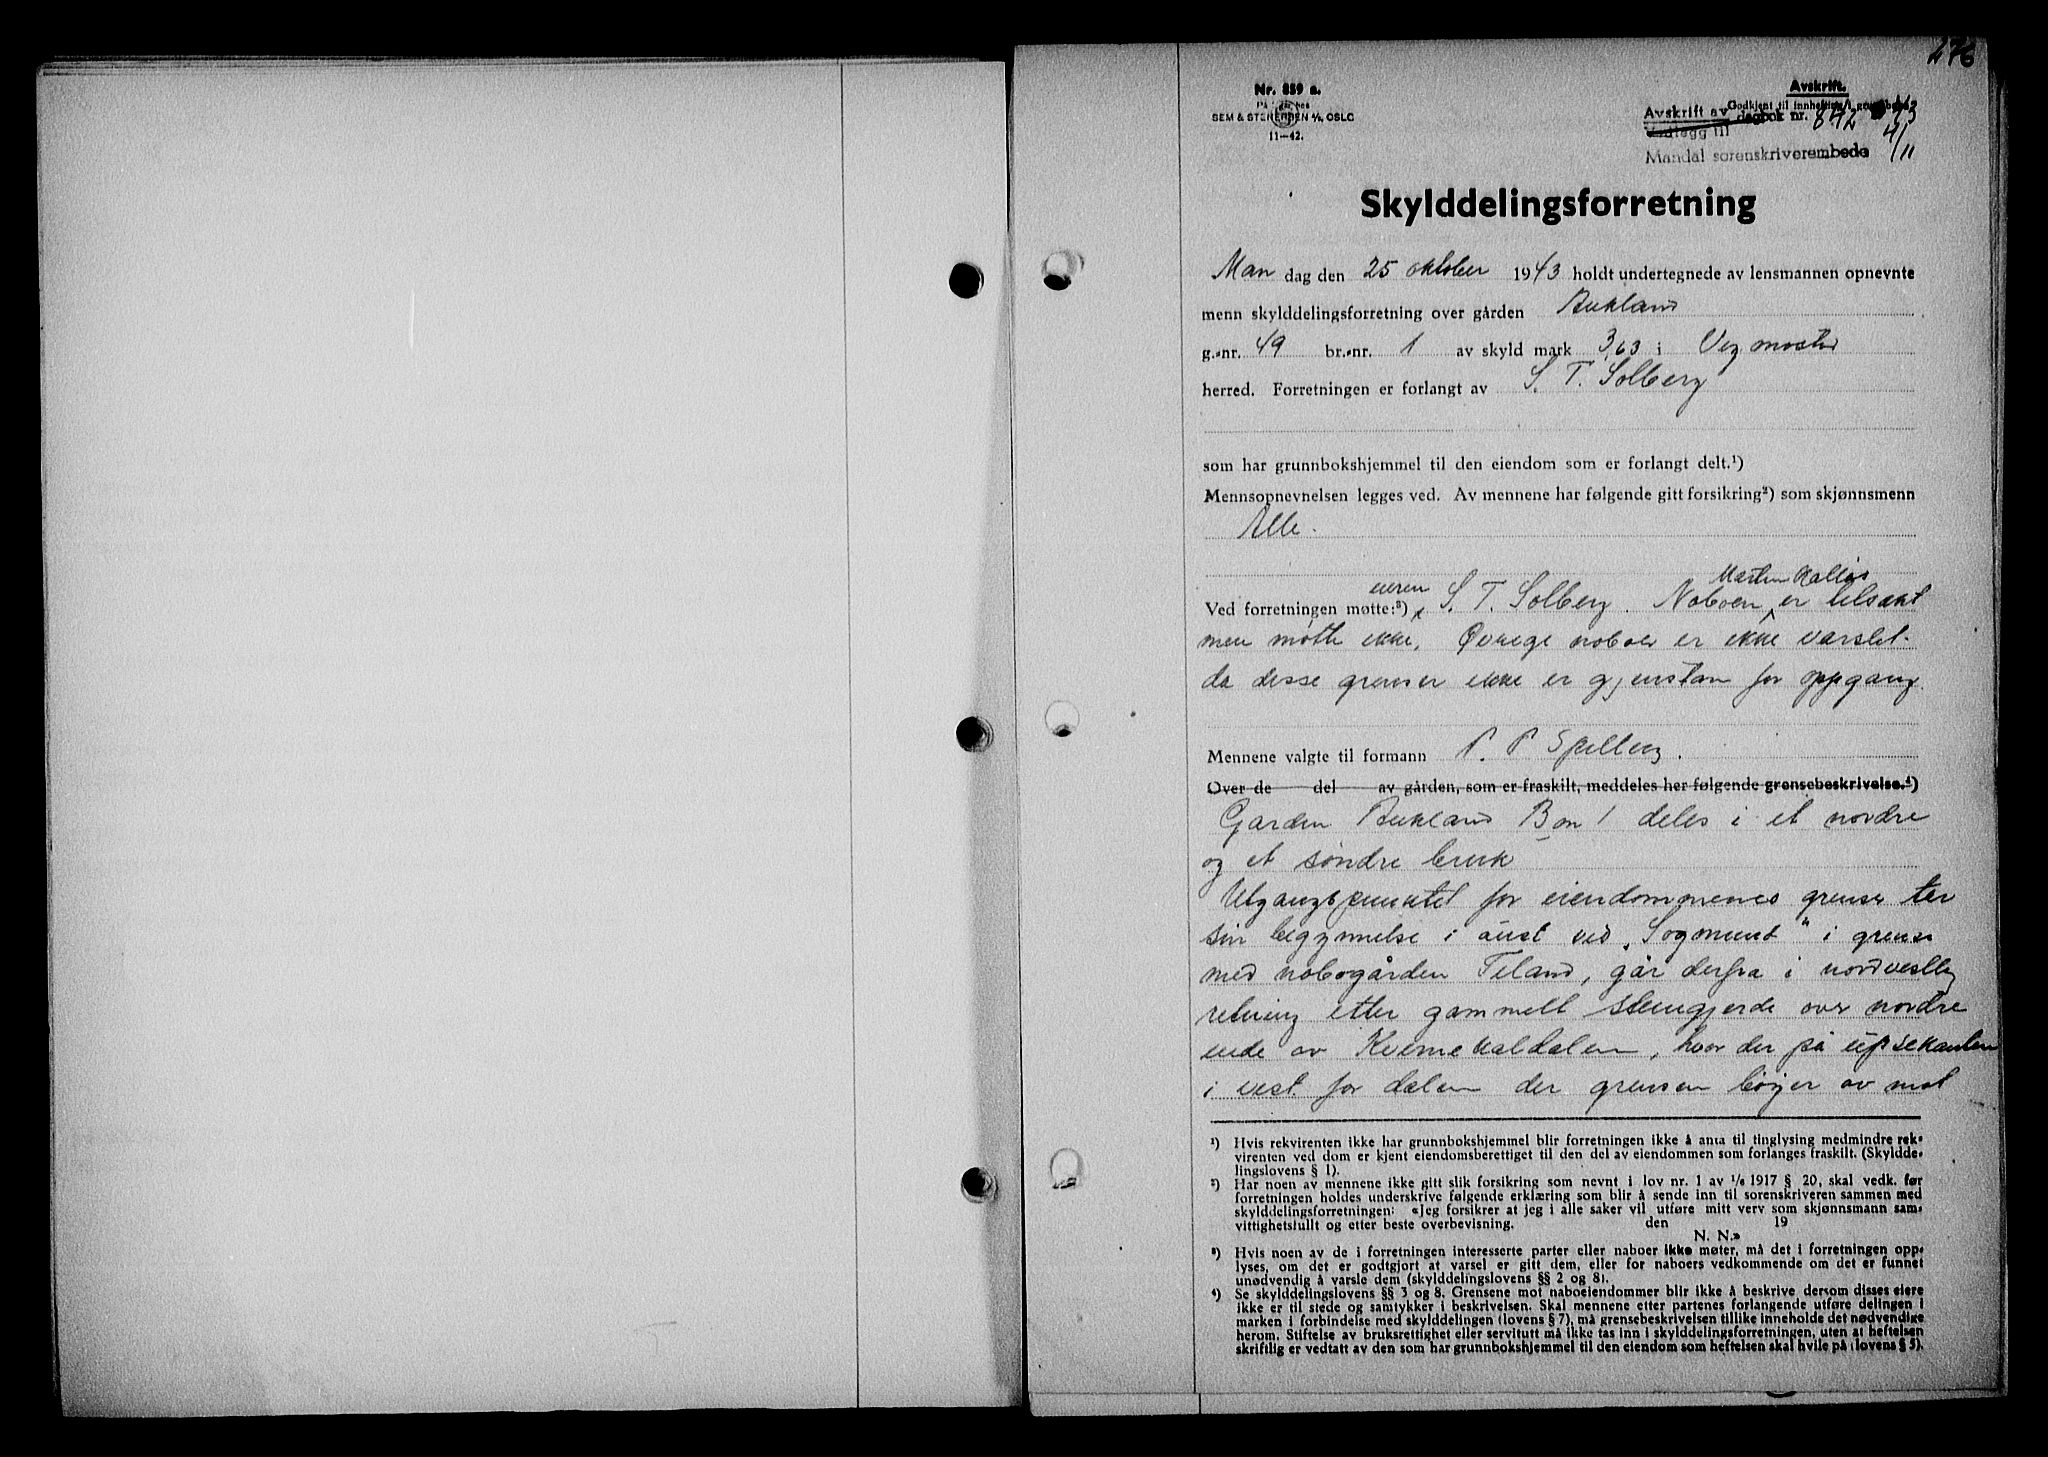 276
Nr. 859 a.
SEM & STENERSEN A/S, OSLO
11—42.
Avskrift.
Godkjent til innhefting i grunnboka
Avskrift av dagbok nr. 872 43
Vedlegg til
4/11
Mandal sorenskriverembede
Skylddelingsforretning
Man dag den 25 oktober 1943 holdt undertegnede av lensmannen opnevnte
menn skylddelingsforretning over gården Aukland
g.-nr. 49 br.-nr. 1 av skyld mark 3,63 i Øyslebø
herred. Forretningen er forlangt av S. T. Solberg
som har grunnbokshjemmel til den eiendom som er forlangt delt.¹)
Mennsopnevnelsen legges ved. Av mennene har følgende gitt forsikring²) som skjønnsmenn
Alle.
eieren Martin
Ved forretningen møtte:³) S. T. Solberg. Naboen er tilsakt
men møtte ikke. Øvrige naboer er ikke varslet
da disse grenser ikke er gjenstan for oppgang.
Mennene valgte til formann P. P Spilling.
Over de del av gården, som er fraskilt, meddeles her følgende grensebeskrivelse.⁴)
Garden Aukland Bn 1 deles i et nordre
og et søndre bruk
Utgangspunktet for eiendommenes grenser tar
sin begynnelse i aust ved „Sogmunt" i grense
med nabogården Teland, går derfra i nordvestlig
retning etter gammelt stengjerde over nordre
ende av Kvernehaldalen, hvor der på upsekanten
i vest for dalen der grensen bøyer av mot
¹) Hvis rekvirenten ikke har grunnbokshjemmel blir forretningen ikke å anta til tinglysing medmindre rek-
virenten ved dom er kjent eiendomsberettiget til den del av eiendommen som forlanges fraskilt. (Skyldde-
lingslovens § 1).
²) Har noen av mennene ikke gitt slik forsikring som nevnt i lov nr. 1 av 1/6 1917 § 20, skal vedk. før
forretningen holdes underskrive følgende erklæring som blir å sende inn til sorenskriveren sammen med
skylddelingsforretningen: «Jeg forsikrer at jeg i alle saker vil utføre mitt verv som skjønnsmann sam-
vittighetsfullt og etter beste overbevisning. den 19
N. N.»
³) Hvis noen av de i forretningen interesserte parter eller naboer ikke møter, må det i forretningen opp-
lyses, om det er godtgjort at varsel er gitt dem, eller for naboers vedkommende om det er funnet
unødvendig å varsle dem (skylddelingslovens §§ 2 og 8).
⁴) Se skylddelingslovens §§ 3 og 8. Grensene mot naboeiendommer blir ikke å beskrive dersom disses eiere
ikke er til stede og samtykker i beskrivelsen. Skal mennene etter partenes forlangende utføre delingen i
marken i forbindelse med skylddelingen (lovens § 7), må grensebeskrivelsen tillike inneholde det nødvendige
herom. Stiftelse av bruksrettighet eller servitutt må ikke tas inn i skylddelingsforretningen, uten at heftelsen
skriftlig er vedtatt av den som har grunnbokshjemmel til den eiendom som heftelsen skal hvile på (lovens § 5).